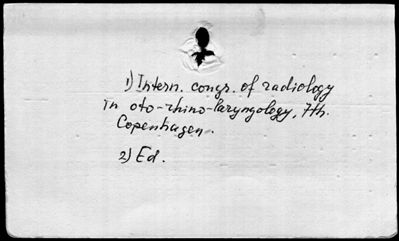 1) Intern. congr. of radiology
in oto-rhino-laryngology, 7th.
Copenhagen.
2) Ed.